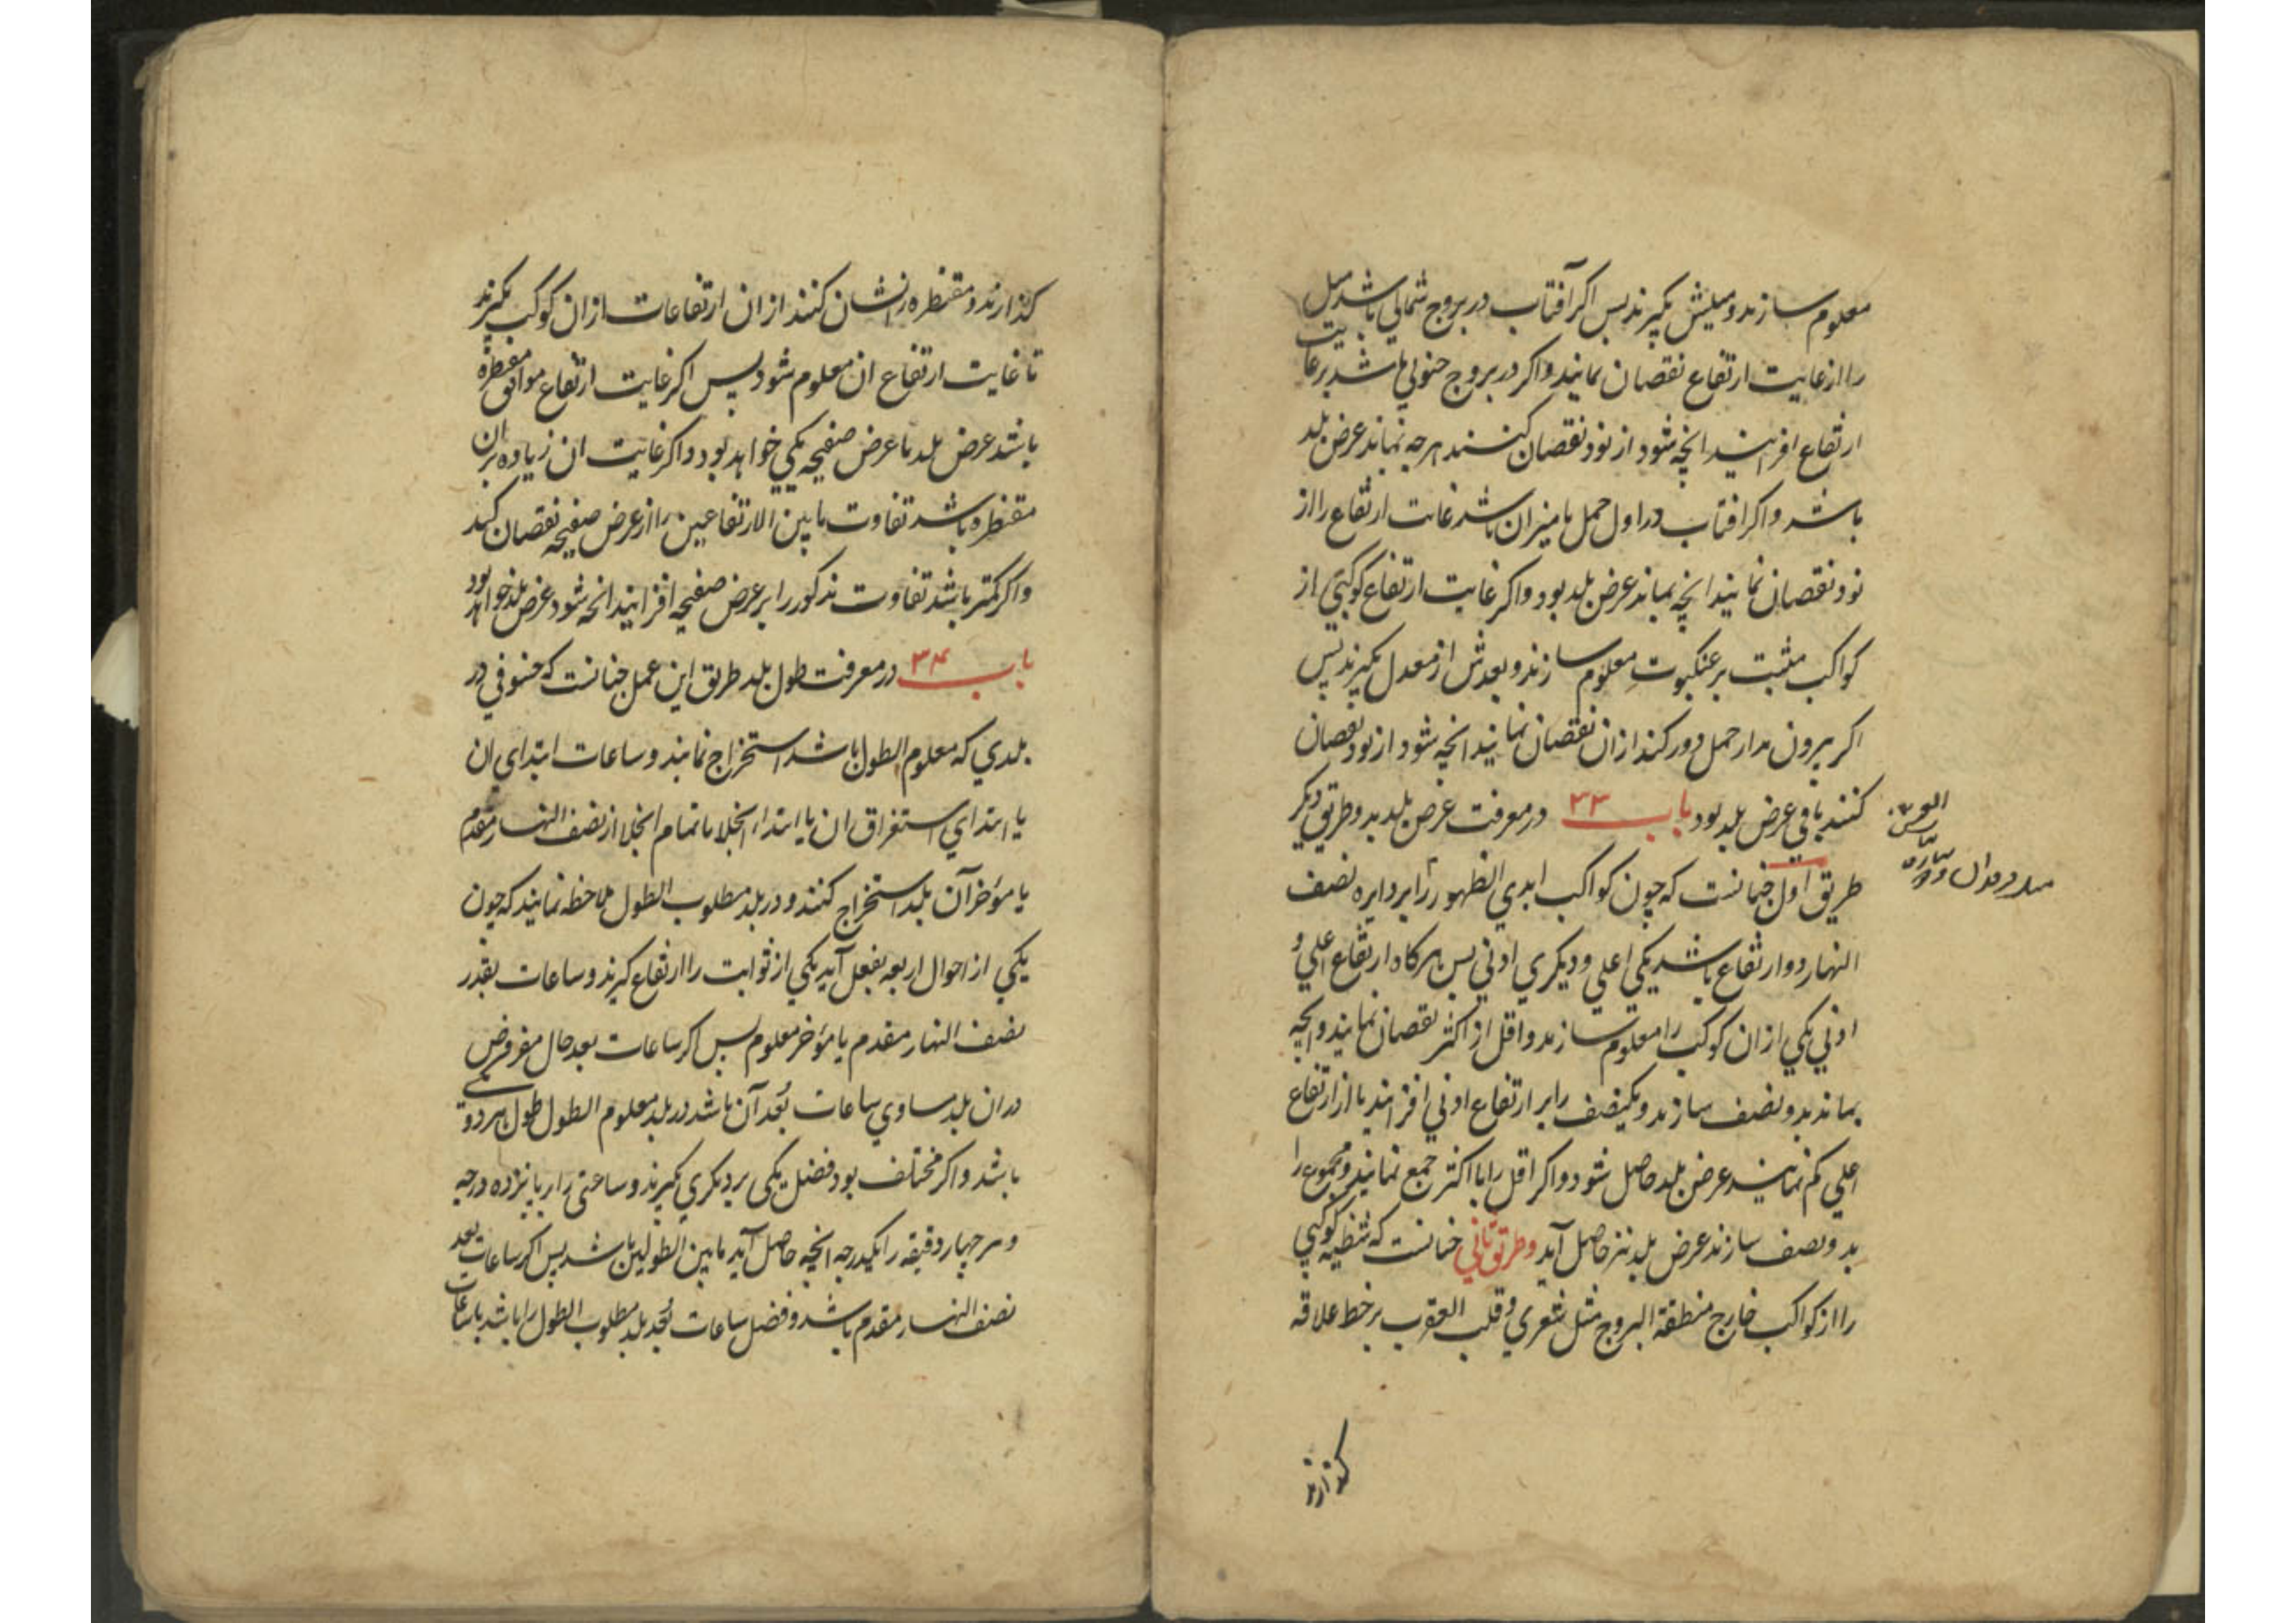 معلوم سازند و میلش بگیرند پس اگر آفتاب در بروج شمالی باشد میل
را از غایت ارتفاع نقصان نمایند و اگر در بروج جنوبی باشد بر غایت
ارتفاع افزایند انچه شود از نود نقصان کنند هرچه بماند عرض بلد
باشد و اگر افتاب در اول حمل یا میزان باشد غایت ارتفاع را از
نود نقصان نمایند انچه بماند عرض بلد بود و اگر غایت ارتفاع کوکبی از
کواکب مثبت بر عنکبوت معلوم سازند و بعدش از معدل بگیرند پس
اگر بیرون مدار حمل دور کند ازان نقصان نمایند انچه شود از نود نقصان
کنند باقی عرض بلد بود باب ۳۳ در معرفت عرض بلد بدو طریق دیگر
طریق اول چنانست که چون کواکب ابدی الظهور را بر دایره نصف
النهار دو ارتفاع باشد یکی اعلی و دیگری ادنی پس هرگاه ارتفاع اعلی و
ادنی یکی ازان کوکب را معلوم سازند و اقل از اکثر نقصان نمایند و انچه
بماند بدو نصف سازند و یکنصف را بر ارتفاع ادنی افزایند یا از ارتفاع
اعلی کم نمایند عرض بلد حاصل شود و اگر اقل را با اکثر جمع نمایند و مجموع را
بدو نصف سازند عرض بلد نیز حاصل آید و طریق ثانی چنانست که شظیه کوکبی
را از کواکب خارج منطقة البروج مثل شعری و قلب العقرب بر خط علاقه
گذارند
گذارند و مقنطره را نشان کنند ازان ارتفاعات ازان کوکب بگیرند
تا غایت ارتفاع ان معلوم شود پس اگر غایت ارتفاع موافق مقنطره
باشد عرض بلد با عرض صفیحه یکی خواهد بود و اگر غایت ان زیاده بران
مقنطره باشد تفاوت ما بین الارتفاعین را از عرض صفیحه نقصان کنند
و اگر کمتر باشد تفاوت مذکور را بر عرض صفیحه افزایند انچه شود عرض بلد خواهد بود
باب ۳۴ در معرفت طول بلد طریق این عمل چنانست که خسوفی در
بلدی که معلوم الطول باشد استخراج نمایند و ساعات ابتدای ان
یا ابتدای استغراق ان یا ابتداء انجلا یا تمام انجلا از نصف النهار مقدم
یا مؤخر آن بلد استخراج کنند و در بلد مطلوب الطول ملاحظه نمایند که چون
یکی از احوال اربعه بفعل آید یکی از ثوابت را ارتفاع گیرند و ساعات بقدر
نصف النهار مقدم یا مؤخر معلوم پس اگر ساعات بعد حال مفروض
دران بلد مساوی ساعات بُعد آن باشد در بلد معلوم الطول طول هر دو یکی
باشد و اگر مختلف بود فضل یکی بر دیگری بگیرند و ساعتی را بر پانزده درجه
و هر چهار دقیقه را یکدرجه انچه حاصل آید ما بین الطولین باشد پس اگر ساعات بعد
نصف النهار مقدم باشد و فضل ساعات بُعد بلد مطلوب الطول را باشد با ساعات